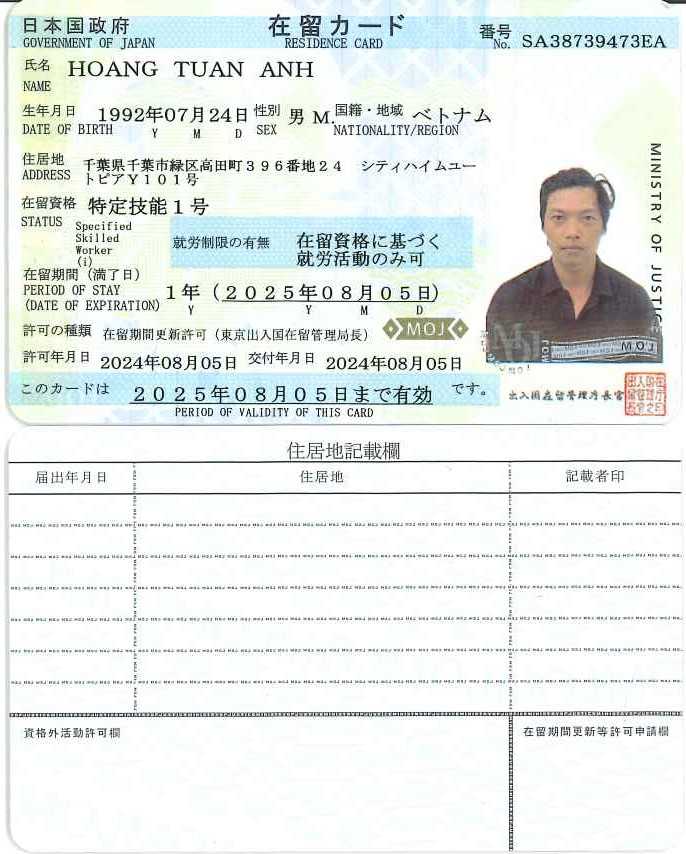 日本国政府 在留カード 番号 SA38739473EA
GOVERNMENT OF JAPAN RESIDENCE CARD No.
氏名 HOANG TUAN ANH
NAME
生年月日 1992年07月24日 性別 男 M. 国籍・地域 ベトナム
DATE OF BIRTH Y M D SEX NATIONALITY/REGION
住居地 千葉県千葉市緑区高田町396番地24 シティハイムユー
ADDRESS トピアY101号
在留資格 特定技能1号
STATUS Specified
Skilled
Worker
(i)
就労制限の有無 在留資格に基づく
就労活動のみ可
在留期間（満了日）
PERIOD OF STAY 1年（2025年08月05日）
(DATE OF EXPIRATION) Y Y M D
許可の種類 在留期間更新許可（東京出入国在留管理局長）
MOJ
許可年月日 2024年08月05日 交付年月日 2024年08月05日
このカードは 2025年08月05日まで有効 です。
PERIOD OF VALIDITY OF THIS CARD
MINISTRY OF JUSTICE
MOJ
出入国在留管理庁長官
住居地記載欄
届出年月日 住居地 記載者印
資格外活動許可欄 在留期間更新等許可申請欄